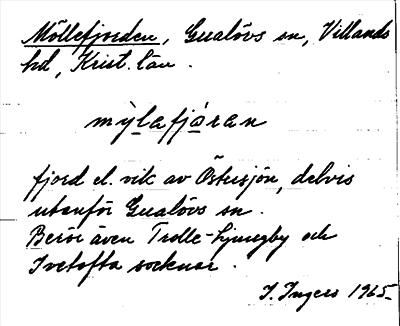 Möllefjorden, Gualövs sn, Villands
hd, Krist. län.
mỳlafjåran
fjord el. vik av Östersjön, delvis
utanför Gualövs sn.
Berör även Trolle-Ljungby och
Ivetofta socknar.
I. Ingers 1965